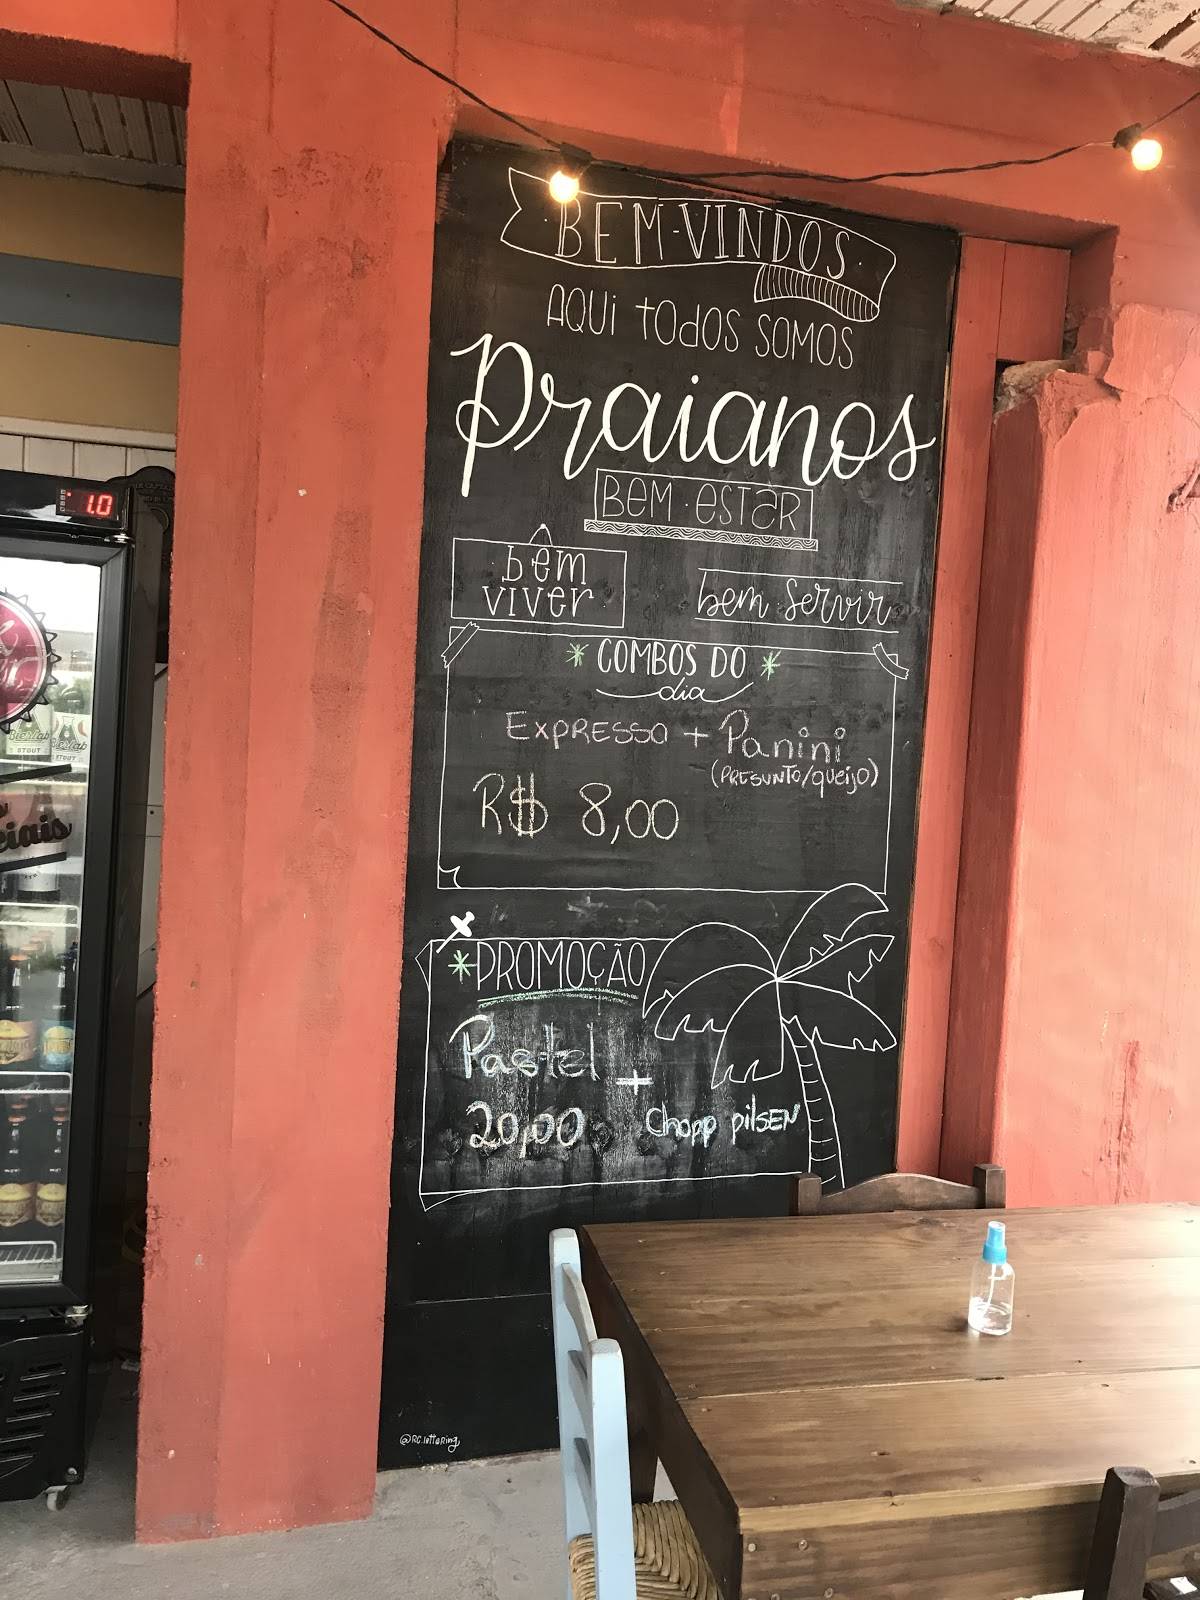 BEM-VINDOS
AQUI TODOS SOMOS
Praianos
BEM·ESTAR
bêm
viver
bem servir
* COMBOS DO *
dia
EXPRESSO + Panini
(PRESUNTO/queijo)
R$ 8,00
*PROMOÇÃO
Pastel +
20,00 Chopp pilSEN
@RG.lettering
1.0
STOUT
STOUT